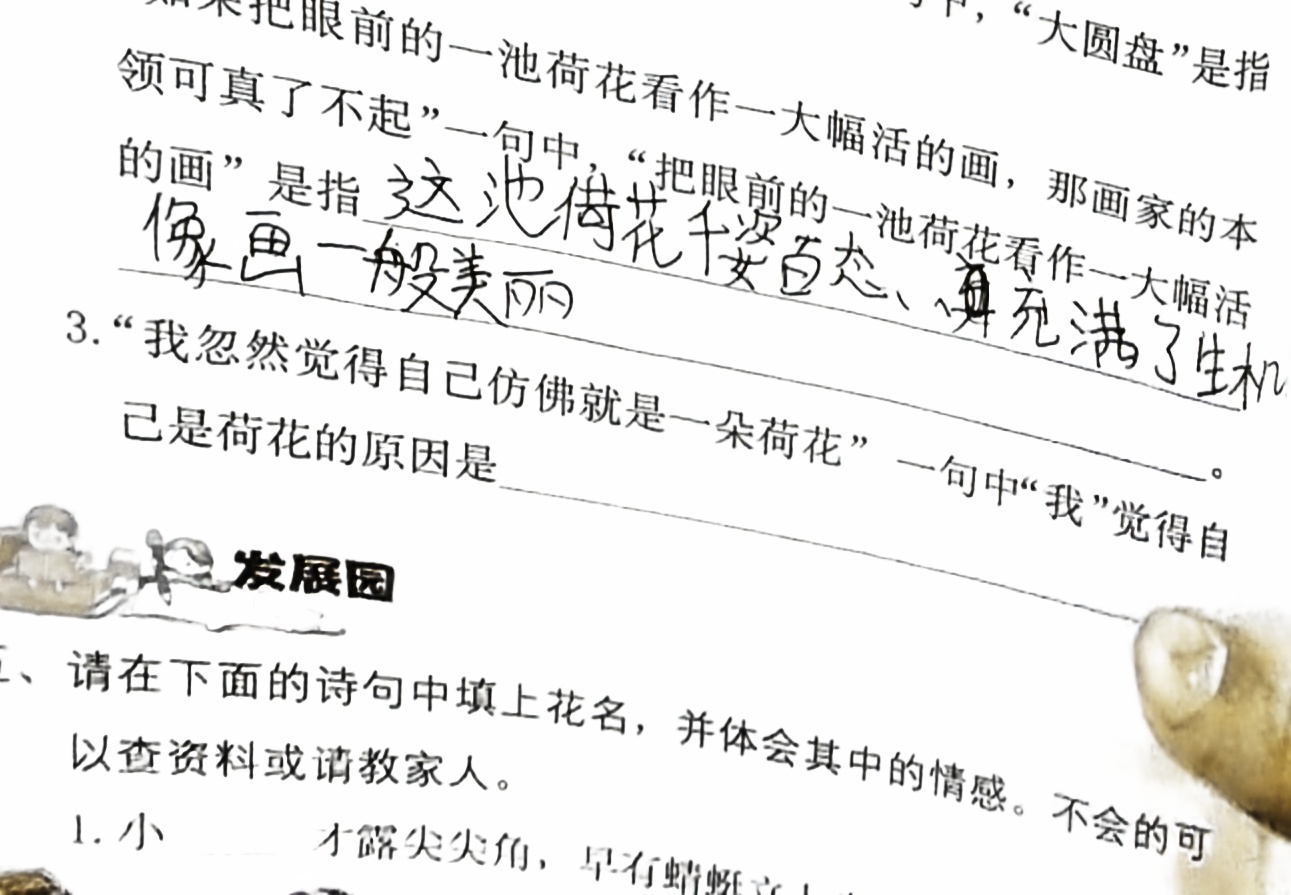 中，“大圆盘”是指
如果把眼前的一池荷花看作一大幅活的画，那画家的本
领可真了不起”一句中，“把眼前的一池荷花看作一大幅活
的画”是指这池荷花千姿百态、真充满了生机
像画一般美丽。
3.“我忽然觉得自己仿佛就是一朵荷花”一句中“我”觉得自
己是荷花的原因是
发展园
、请在下面的诗句中填上花名，并体会其中的情感。不会的可
以查资料或请教家人。
1. 小 才露尖尖角，早有蜻蜓立上